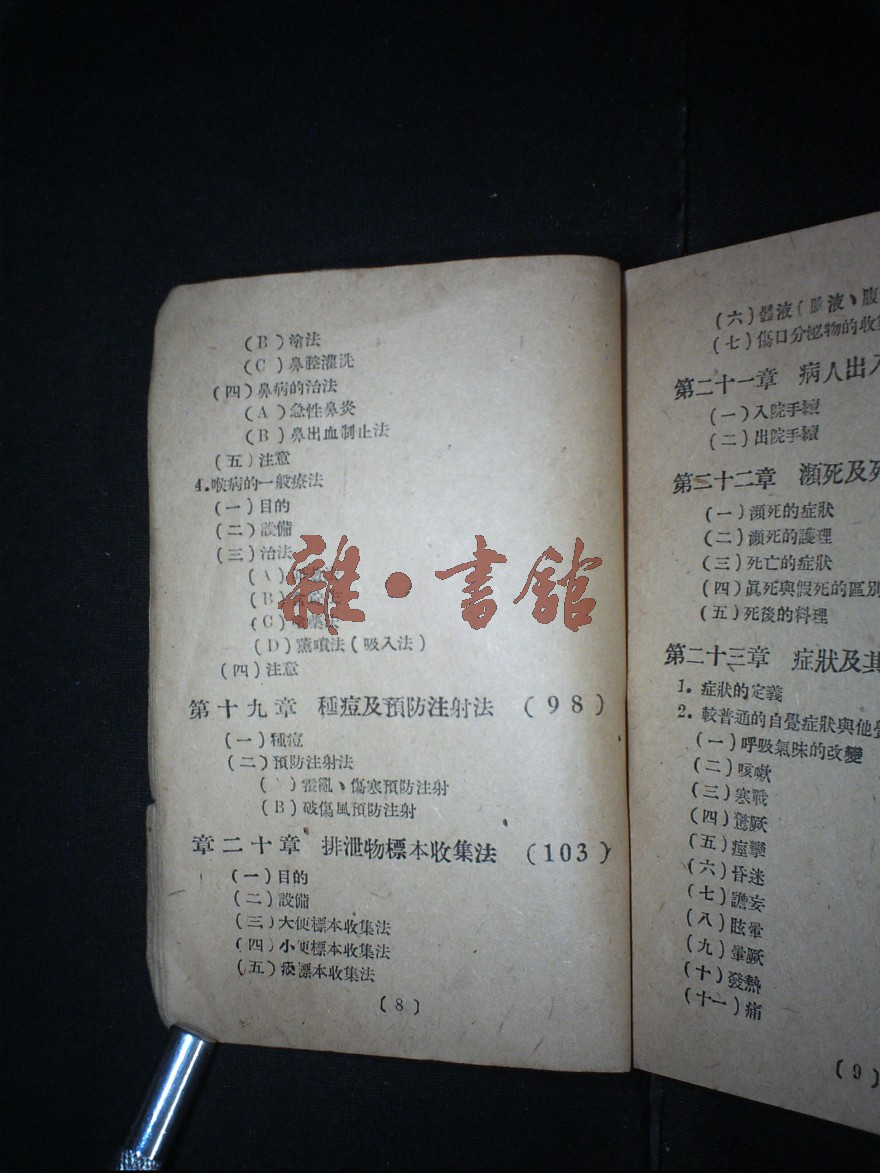 (B)塗法
(C)鼻腔灌洗
(四)鼻病的治法
(A)急性鼻炎
(B)鼻出血制止法
(五)注意
4.喉病的一般療法
(一)目的
(二)設備
(三)治法
(A)
(B)
(C)
(D)薰噴法(吸入法)
(四)注意
雜·書館
第十九章 種痘及預防注射法 (98)
(一)種痘
(二)預防注射法
( )霍亂、傷寒預防注射
(B)破傷風預防注射
章二十章 排泄物標本收集法 (103)
(一)目的
(二)設備
(三)大便標本收集法
(四)小便標本收集法
(五)痰標本收集法
(8)
(六)體液( 液、腹
(七)傷口分泌物的收集
第二十一章 病人出入
(一)入院手續
(二)出院手續
第二十二章 瀕死及死
(一)瀕死的症狀
(二)瀕死的護理
(三)死亡的症狀
(四)眞死與假死的區別
(五)死後的料理
第二十三章 症狀及其
1.症狀的定義
2.較普通的自覺症狀與他覺
(一)呼吸氣味的改變
(二)咳嗽
(三)寒戰
(四)驚厥
(五)痙攣
(六)昏迷
(七)譫妄
(八)眩暈
(九)暈厥
(十)發熱
(十一)痛
(9)